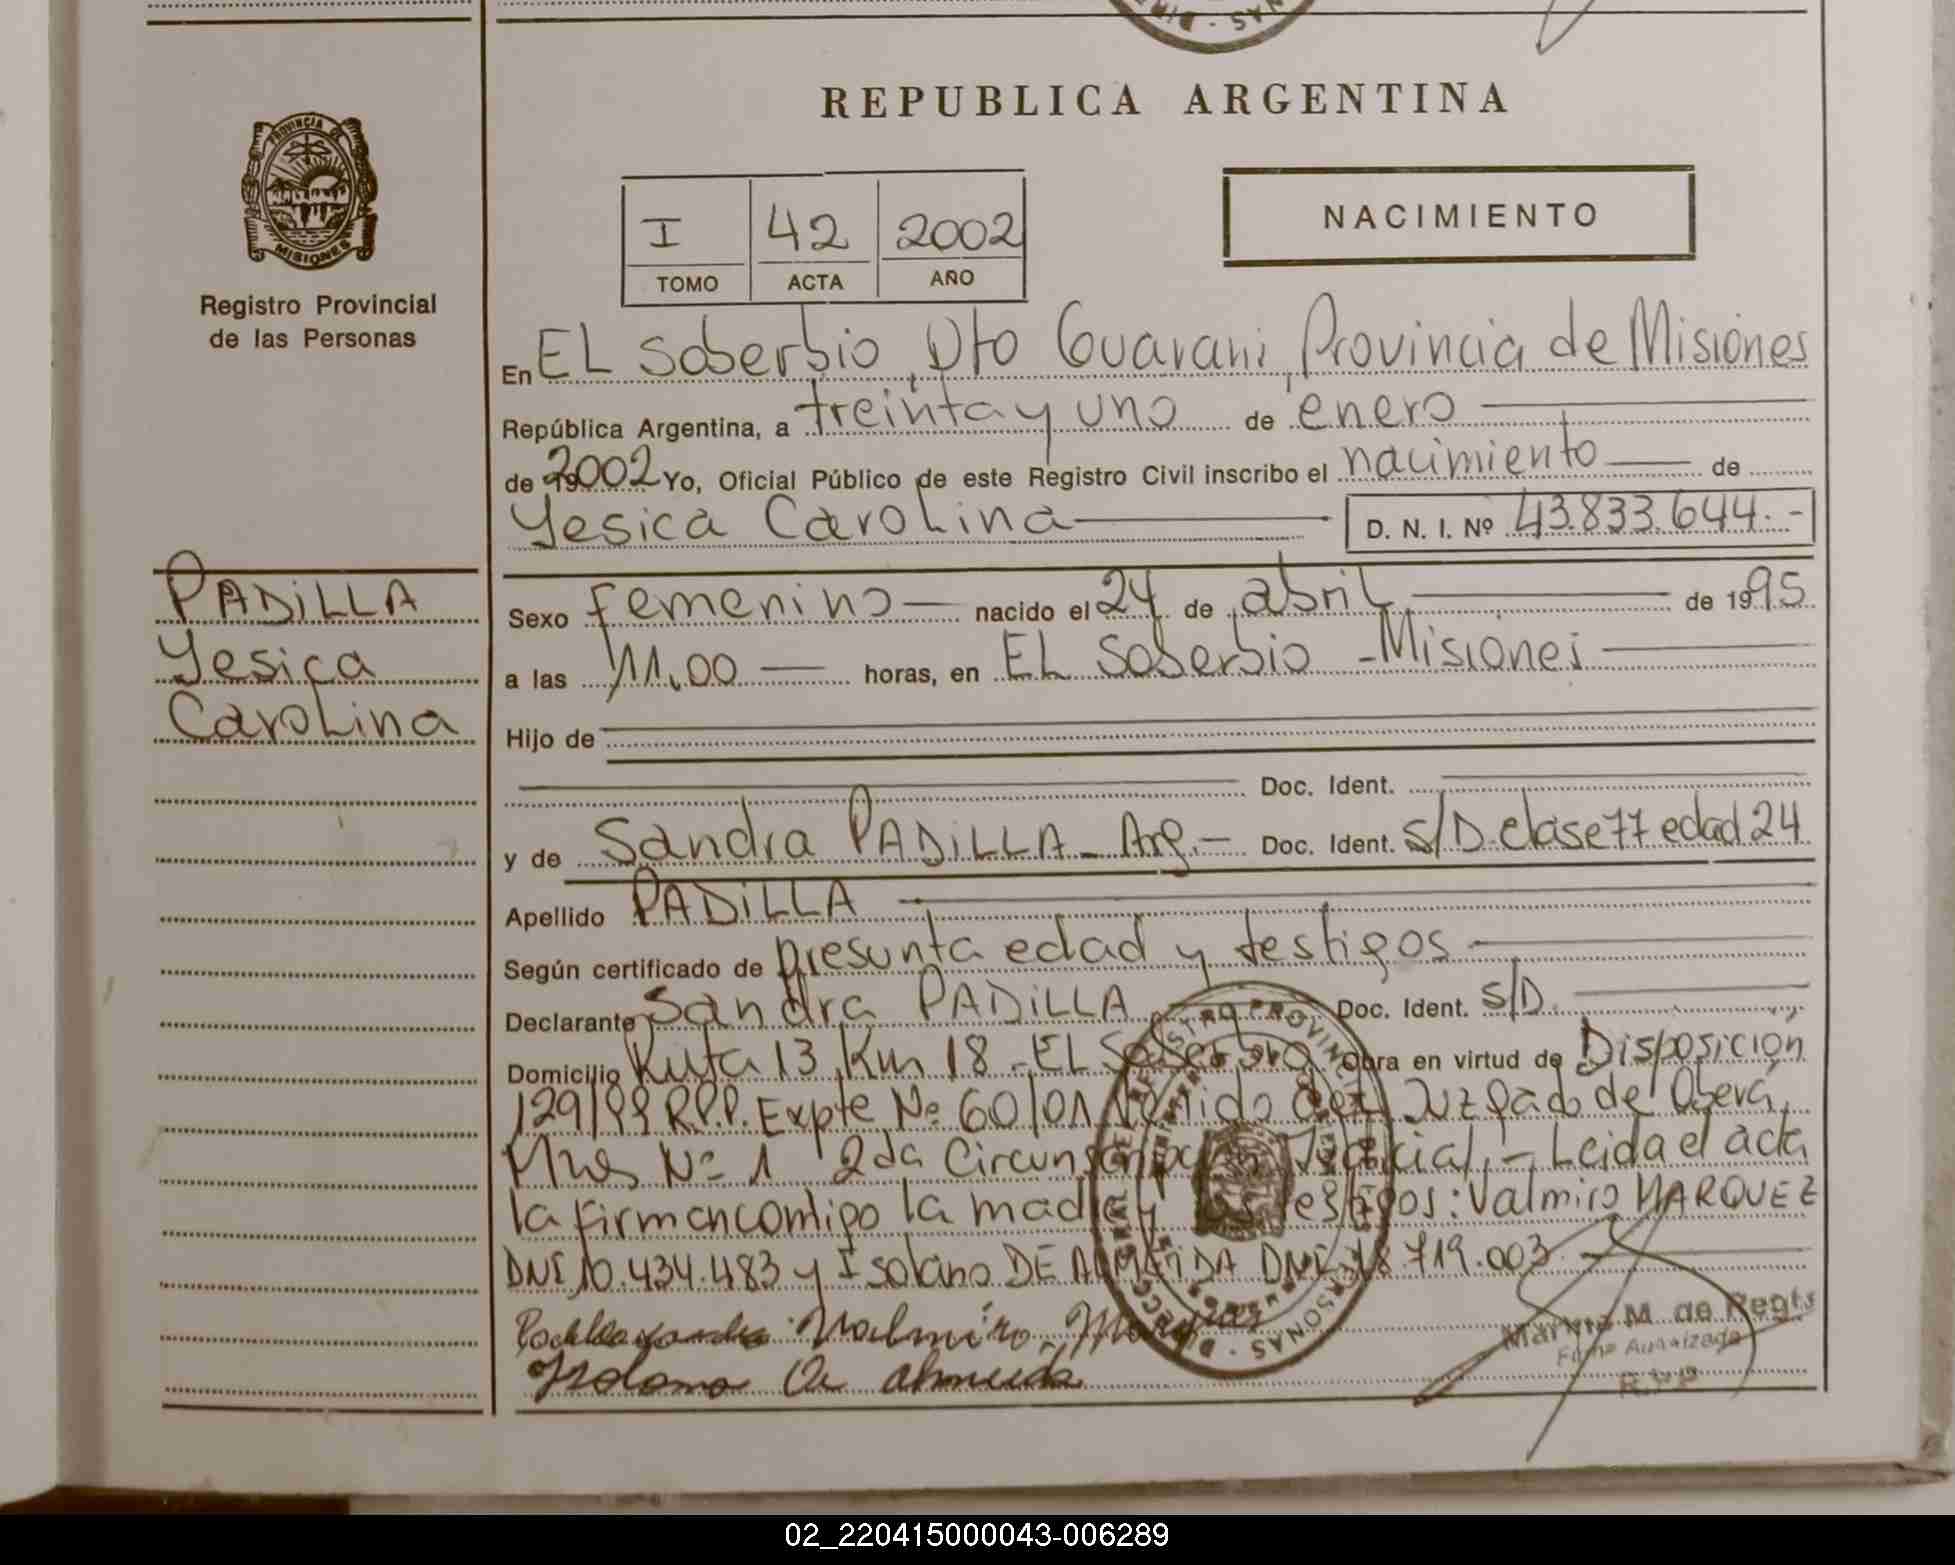 REPUBLICA ARGENTINA
PROVINCIA DE
MISIONES
Registro Provincial
de las Personas
I 42 2002
TOMO ACTA AÑO
NACIMIENTO
En EL Soberbio, Dto Guarani, Provincia de Misiones
República Argentina, a treinta y uno de enero
de 2002 Yo, Oficial Público de este Registro Civil inscribo el nacimiento de
Yesica Carolina D. N. I. Nº 43.833.644.-
PADiLLA
Yesica
Carolina
Sexo femenino nacido el 24 de abril de 1995
a las 11,00 horas, en EL Soberbio - Misiones
Hijo de
Doc. Ident.
y de Sandra PADiLLA - Arg.- Doc. Ident. S/D. clase 77 edad 24
Apellido PADiLLA
Según certificado de presunta edad y testigos
Declarante Sandra PADiLLA Doc. Ident. S/D.
Domicilio Ruta 13 Km 18 - EL Soberbio Obra en virtud de Disposición
129/99 R.P.P. Expte Nº 60/01 venido del Juzgado de Oberá,
Mnes Nº 1 2da Circunscripción Judicial.- Leida el acta
la firman contigo la madre y los testigos: Valmiro MARQUEZ
DNI 10.434.483 y Isolano DE ALMEIDA DNI 18.719.003.
Valmiro Marques
De Almeida
Martha M. de Regts
Firma Autorizada
R.P.P
02_220415000043-006289